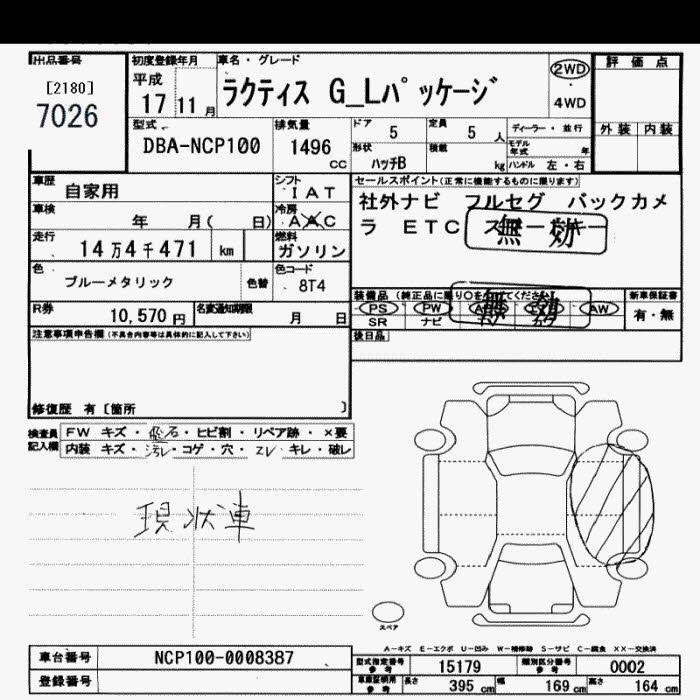 出品番号
[2180]
7026
初度登録年月
平成
17 11 月
車名・グレード
ラクティス G_Lパッケージ
2WD
4WD
評価点
外装 内装
型式
DBA-NCP100
排気量
1496
CC
ドア 5
定員 5 人
形状 ハッチB
積載 kg
ディーラー・並行
モデル年式 年
ハンドル 左・右
車歴 自家用
シフト
IAT
車検 年 月( 日)
冷房
AAC
走行 14万4千471 km
燃料
ガソリン
色 ブルーメタリック
色替
色コード
8T4
セールスポイント(正常に機能するものに限ります)
社外ナビ フルセグ バックカメ
ラ ETC
無効
装備品
PS PW AW
SR ナビ
新車保証書
有・無
後日品
R券 10,570 円
名変通知期限 月 日
注意事項申告欄(不具合内容等は具体的に記入して下さい)
修復歴 有〔箇所 〕
検査員記入欄
FW キズ・飛石・ヒビ割・リペア跡・×要
内装 キズ・汚レ・コゲ・穴・スレ・キレ・破レ
現状車
スペア
A-キズ E-エクボ U-凹み W-補修跡 S-サビ C-腐食 XX-交換済
車台番号 NCP100-0008387
登録番号
型式指定番号 参考 15179
類別区分番号 参考 0002
車庫証明用 参考 長さ 395 cm 幅 169 cm 高さ 164 cm